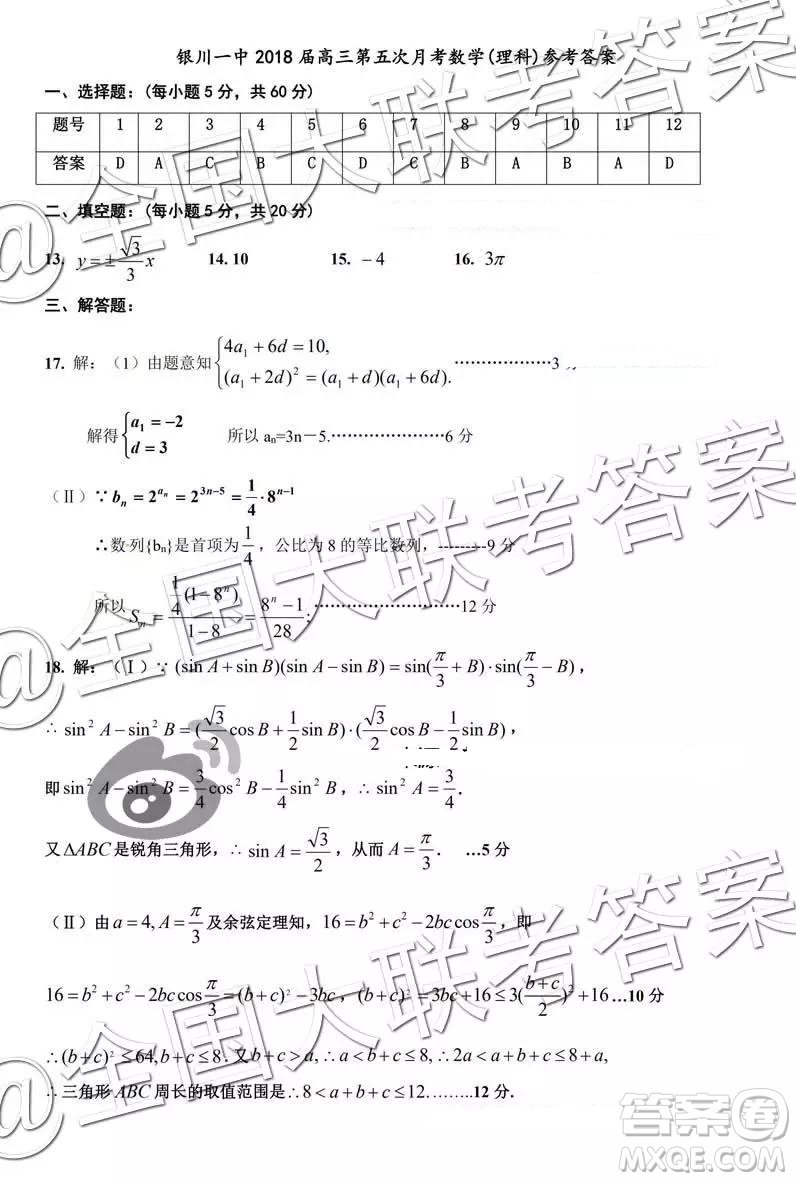 银川一中 2018 届高三第五次月考数学(理科)参考答案
一、选择题：(每小题 5 分，共 60 分)
题号 1 2 3 4 5 6 7 8 9 10 11 12
答案 D A C B C D C B A B A D
二、填空题：(每小题 5 分，共 20 分)
13. y=±(√3/3)x 14. 10 15. -4 16. 3π
三、解答题：
17. 解：（1）由题意知 {4a₁+6d=10, (a₁+2d)²=(a₁+d)(a₁+6d). ………………3 分
解得 {a₁=-2 d=3 所以 aₙ=3n-5.…………………6 分
(Ⅱ) ∵ bₙ=2^(aₙ)=2^(3n-5)=1/4·8^(n-1)
∴数列{bₙ}是首项为 1/4，公比为 8 的等比数列，---------9 分
所以 Sₙ=(1/4(1-8ⁿ))/(1-8)=(8ⁿ-1)/28;………………………12 分
18. 解：(Ⅰ) ∵ (sin A+sin B)(sin A-sin B)=sin(π/3+B)·sin(π/3-B)，
∴ sin² A-sin² B=(√3/2 cos B+1/2 sin B)·(√3/2 cos B-1/2 sin B)，
即 sin² A-sin² B=3/4 cos² B-1/4 sin² B，∴ sin² A=3/4.
又 ΔABC 是锐角三角形，∴ sin A=√3/2，从而 A=π/3. …5 分
(Ⅱ) 由 a=4, A=π/3 及余弦定理知，16=b²+c²-2bc cos π/3，即
16=b²+c²-2bc cos π/3=(b+c)²-3bc，(b+c)²=3bc+16≤3((b+c)/2)²+16…10 分
∴(b+c)²≤64, b+c≤8. 又 b+c>a, ∴a<b+c≤8, ∴2a<a+b+c≤8+a,
∴三角形 ABC 周长的取值范围是∴8<a+b+c≤12.……..12 分.
@全国大联考答案
@全国大联考答案
@全国大联考答案
答案卷
MXQE.COM